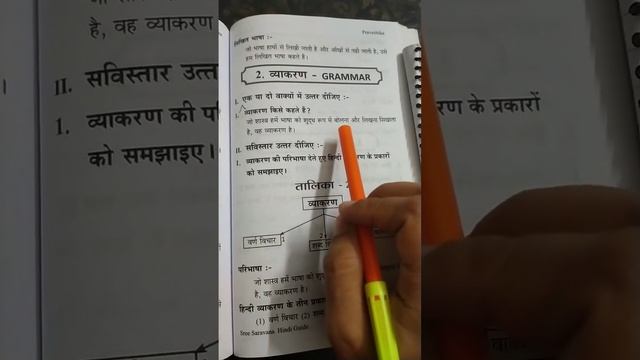 Praveshika
लिखित भाषा :-
जो भाषा हाथों से लिखी जाती है और आँखों से पढ़ी जाती है, उसे
हम लिखित भाषा कहते है।
2. व्याकरण - GRAMMAR
I. एक या दो वाक्यों में उत्तर दीजिए :-
1. व्याकरण किसे कहते है?
जो शास्त्र हमें भाषा को शुद्ध रूप में बोलना और लिखना सिखाता
है, वह व्याकरण है।
II. सविस्तार उत्तर दीजिए :-
1. व्याकरण की परिभाषा देते हुए हिन्दी के प्रकारों
को समझाइए।
तालिका -
व्याकरण
वर्ण विचार 1
2
शब्द
परिभाषा :-
जो शास्त्र हमें भाषा को
है, वह व्याकरण है।
हिन्दी व्याकरण के तीन
(1) वर्ण विचार (2) शब्द
Sree Saravana Hindi Guide
है, वह व्याकरण
II. सविस्तार उत्त
1. व्याकरण की प
को समझाइए।
ण के प्रकारों